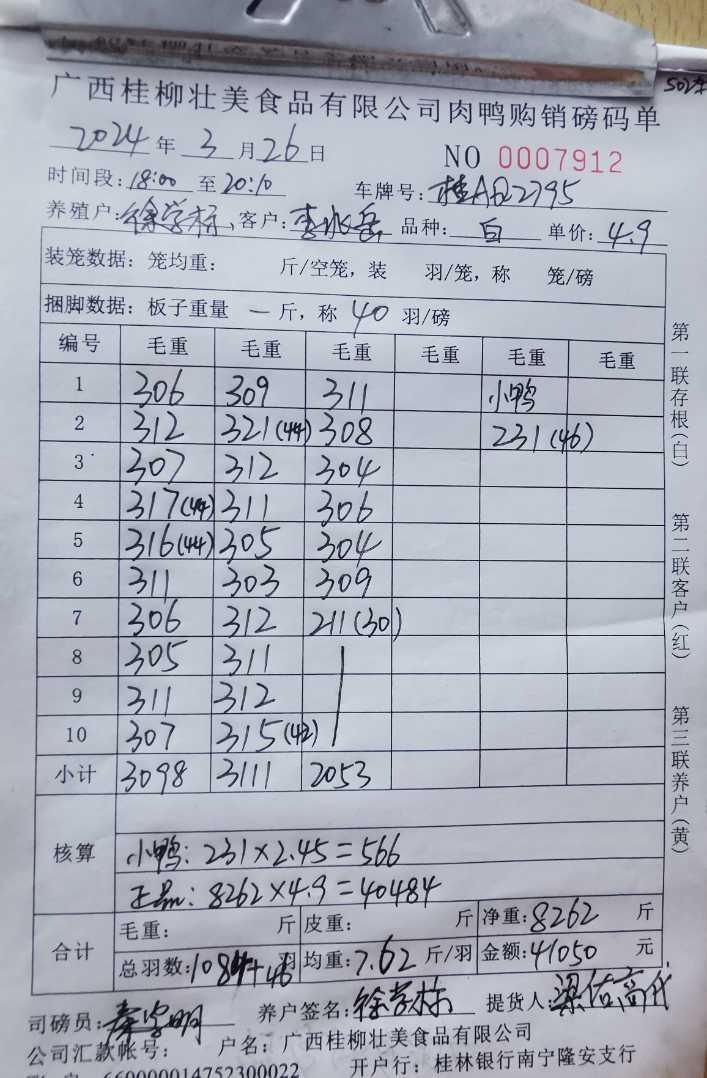 502车
广西桂柳壮美食品有限公司肉鸭购销磅码单
2024年 3月26日 NO 0007912
时间段:18:00 至20:10 车牌号:桂AD2795
养殖户:徐学标 客户:李水岳 品种:白 单价:4.9
装笼数据:笼均重: 斤/空笼,装 羽/笼,称 笼/磅
捆脚数据:板子重量 一 斤,称 40 羽/磅
编号 毛重 毛重 毛重 毛重 毛重 毛重
1 306 309 311 小鸭
2 312 321(44) 308 231(46)
3 307 312 304
4 317(44) 311 306
5 316(44) 305 304
6 311 303 309
7 306 312 211(30)
8 305 311
9 311 312
10 307 315(42)
小计 3098 3111 2053
核算
小鸭: 231×2.45=566
正品: 8262×4.9=40484
合计 毛重: 斤 皮重: 斤 净重:8262 斤
总羽数:1084+46羽 均重:7.62 斤/羽 金额:41050 元
司磅员: 养户签名:徐学标 提货人:
公司汇款帐号: 户名:广西桂柳壮美食品有限公司
660000014752300022 开户行:桂林银行南宁隆安支行
第一联存根(白)
第二联客户(红)
第三联养户(黄)